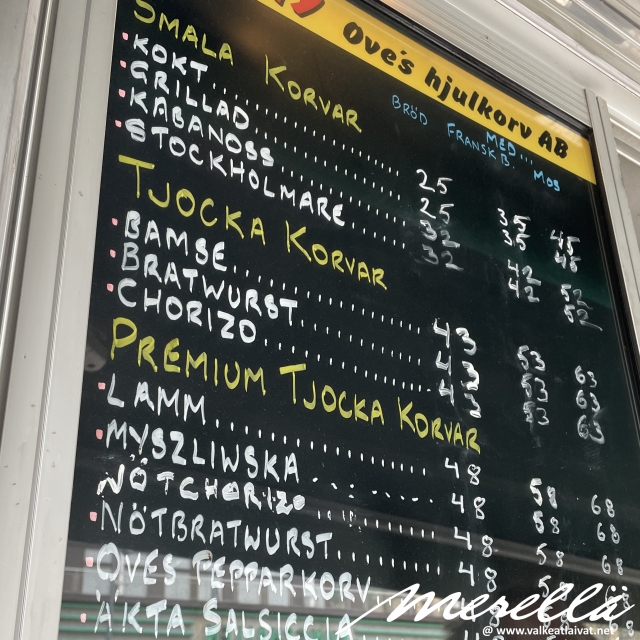 Ove's hjulkorv AB
SMALA KORVAR
MED...
BRÖD FRANSKB. MOS
KOKT 25 35 45
GRILLAD 25 35 45
KABANOSS 32 42 52
STOCKHOLMARE 32 42 52
TJOCKA KORVAR
BAMSE 43 53 63
BRATWURST 43 53 63
CHORIZO 43 53 63
PREMIUM TJOCKA KORVAR
LAMM 48 58 68
MYSZLIWSKA 48 58 68
NÖTCHORIZO 48 58 68
NÖTBRATWURST 48
OVES PEPPARKORV
ÄKTA SALSICCIA
merellä
@ www.valkeatlaivat.net